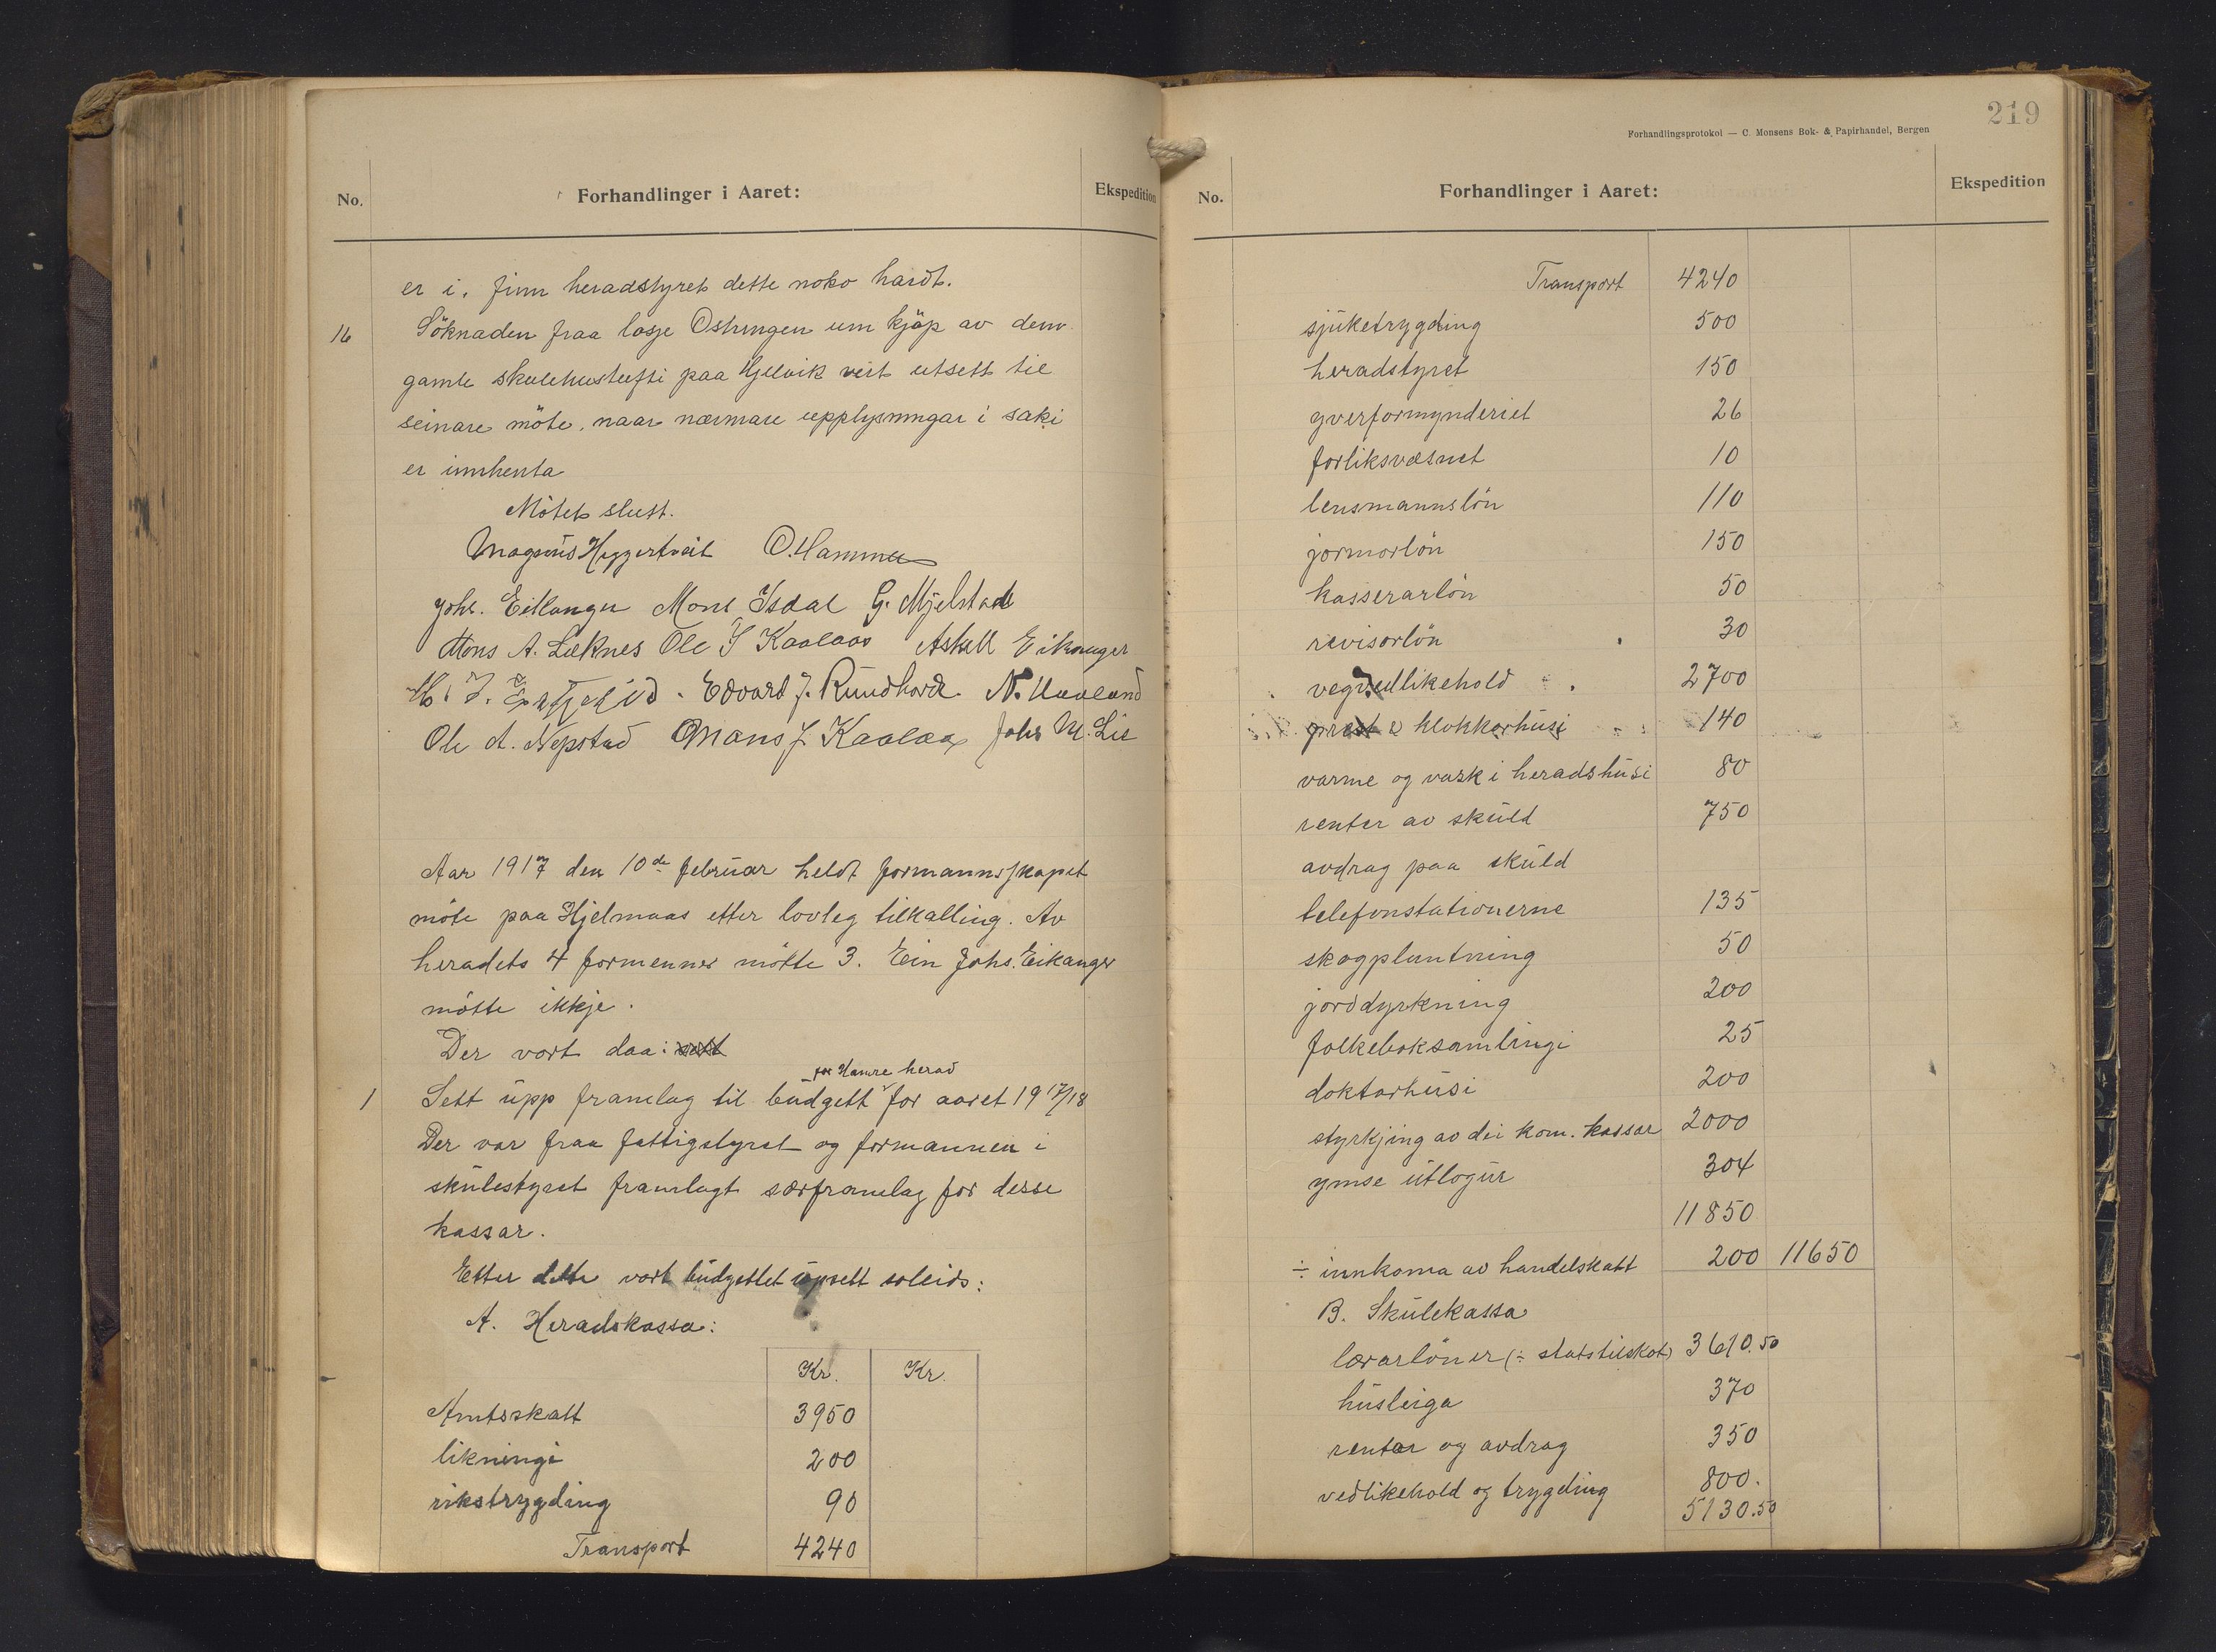 No.
Forhandlinger i Aaret:
Ekspedition
er i, finn heradstyret dette noko hardt.
16 Söknaden fraa losje Ostringen um kjöp av den
gamle skulehustufti paa Hjelvik vert utsett til
seinare möte, naar nærmare upplysningar i saki
er innhenta
Mötet slutt.
Magnus Heggertveit O. Hammer
Johs. Eikanger Mons Isdal G. Mjelstad
Mons A. Læknes Ole I Kaalaas Askell Eikanger
Edvard J. Rundhovde N. Haaland
Ole A. Nepstad Mons J. Kaalaas Johs M. Lie
Aar 1917 den 10de februar heldt formannsskapet
möte paa Hjelmaas etter lovleg tilkalling. Av
heradets 4 formenner mötte 3. Ein Johs. Eikanger
mötte ikkje.
Der vart daa:
for Hamre herad
1 Sett upp framlag til budgett for aaret 1917/18
Der var fraa fattigstyret og formannen i
skulestyret framlagt særframlag for desse
kassar.
Etter dette vart budgettet uppsett soleids:
A. Heradskassa:
Kr. Kr.
Amtsskatt 3950
likningi 200
rikstrygding 90
Transport 4240
219
Forhandlingsprotokol — C. Monsens Bok- & Papirhandel, Bergen
No.
Forhandlinger i Aaret:
Ekspedition
Transport 4240
sjuketrygding 500
heradstyret 150
yverformynderiet 26
forliksvæsnet 10
lensmannslön 110
jormorlön 150
kasserarlön 50
revisorlön 30
vegvedlikehold 2700
prest & klokkarhusi 140
varme og vask i heradshusi 80
renter av skuld 750
avdrag paa skuld
telefonstationerne 135
skogplantning 50
jorddyrkning 200
folkeboksamlingi 25
doktorhusi 200
styrkjing av dei kom. kassar 2000
ymse utlogur 304
11850
÷ innkoma av handelskatt 200 11650
B. Skulekassa
lærarlöner (÷ statstilskot) 3610.50
husleiga 370
rentar og avdrag 350
vedlikehold og trygding 800.
5130.50